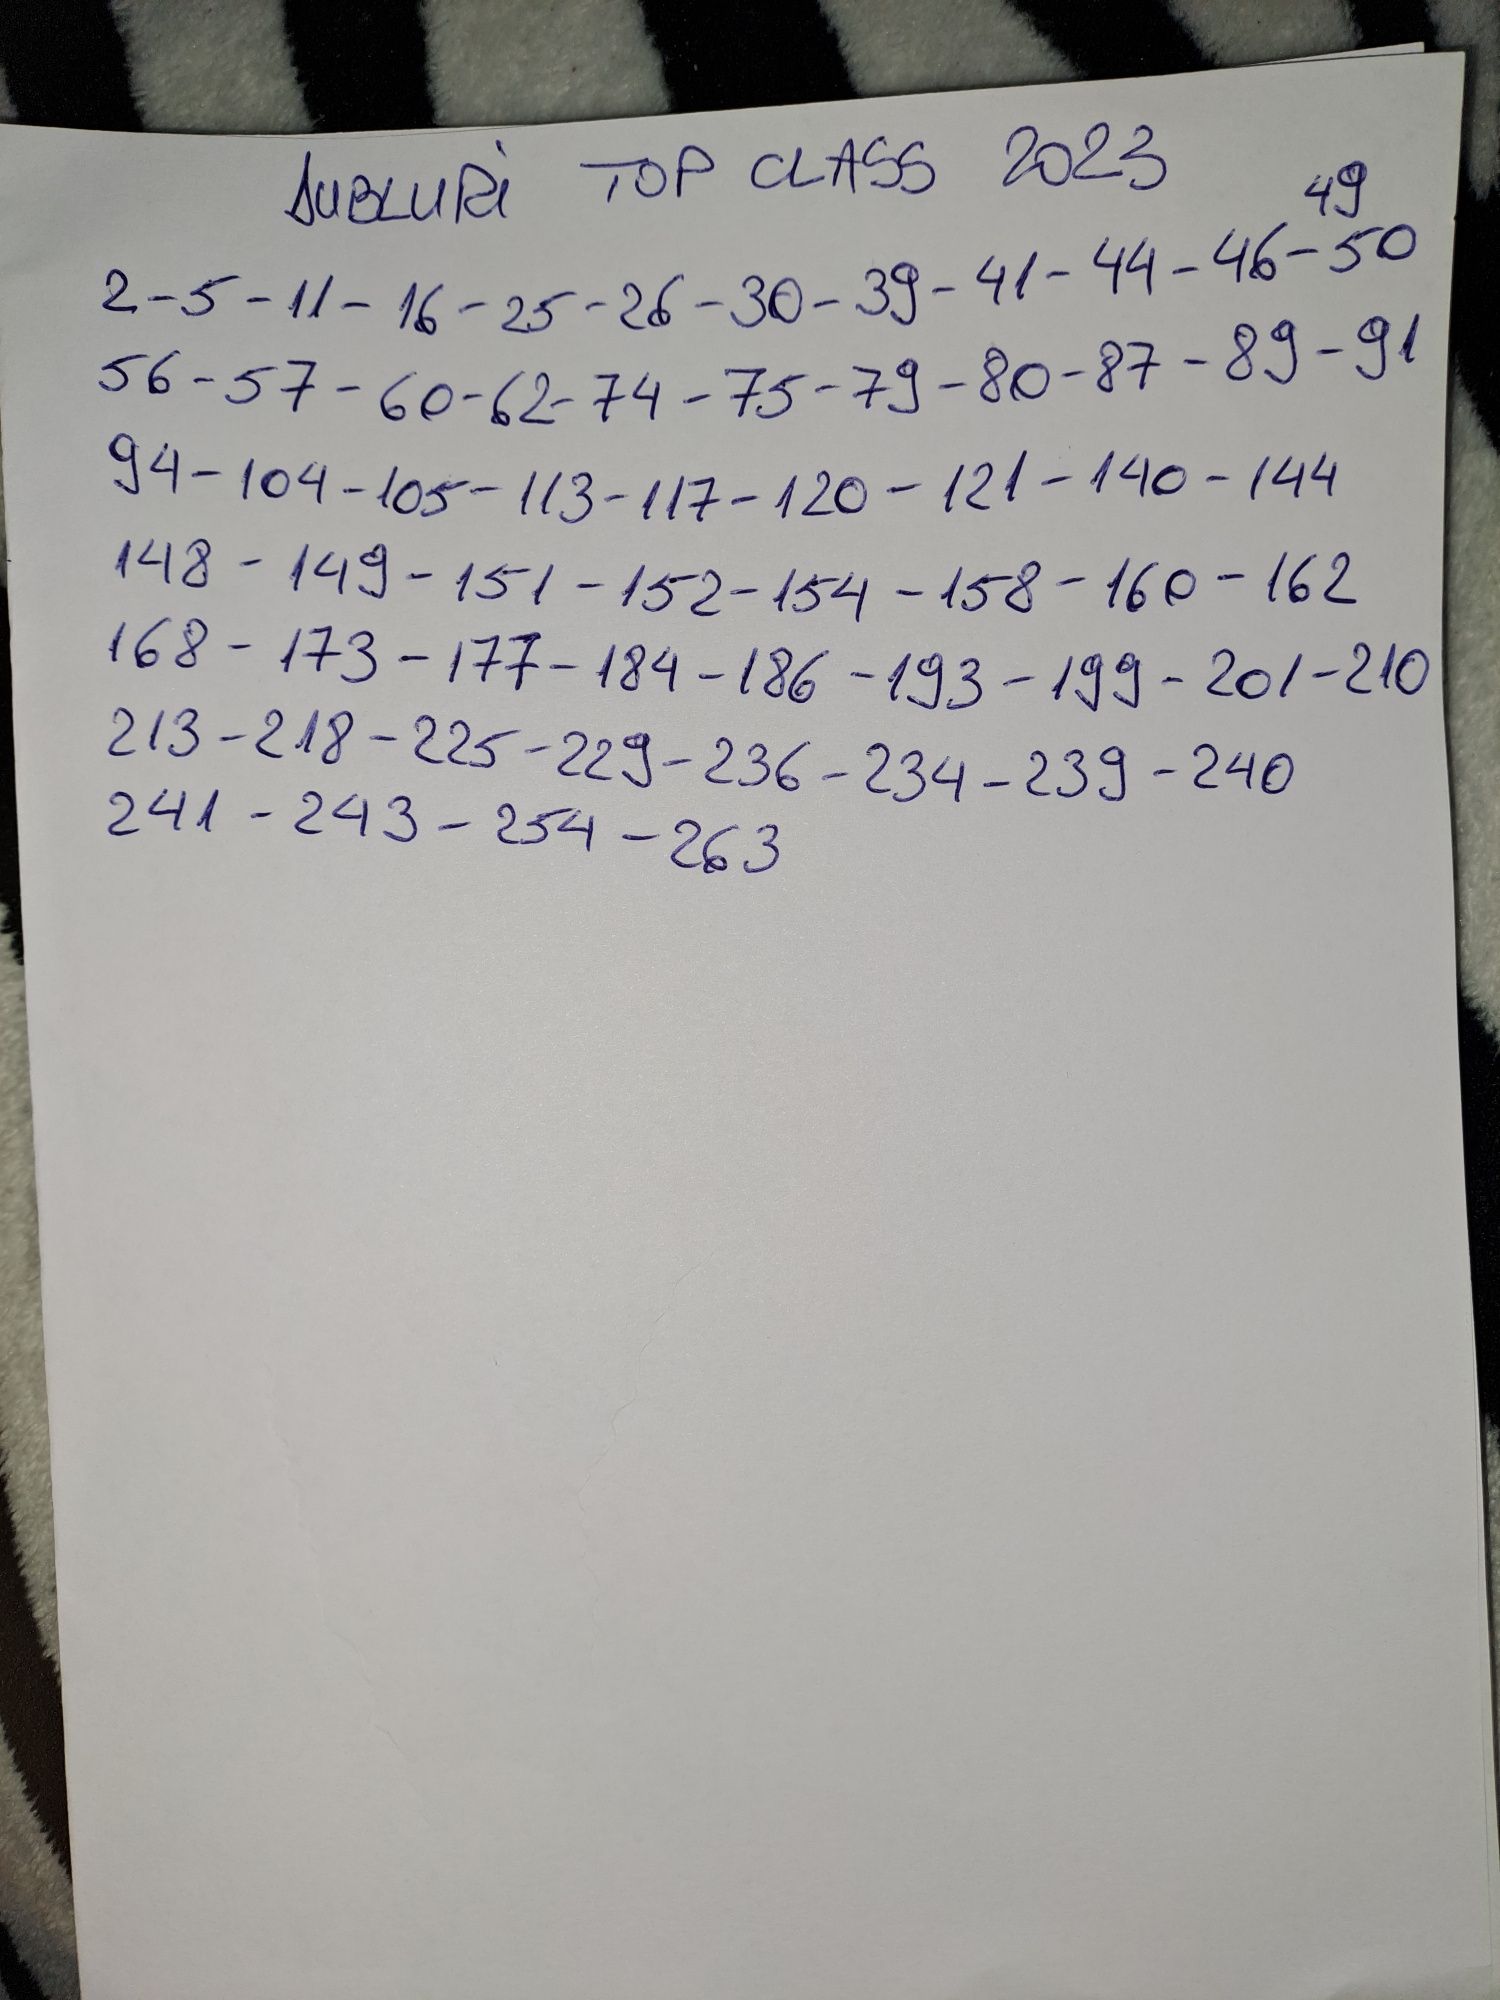 DUBLURi TOP CLASS 2023
49
2-5-11-16-25-26-30-39-41-44-46-50
56-57-60-62-74-75-79-80-87-89-91
94-104-105-113-117-120-121-140-144
148-149-151-152-154-158-160-162
168-173-177-184-186-193-199-201-210
213-218-225-229-236-234-239-240
241-243-254-263